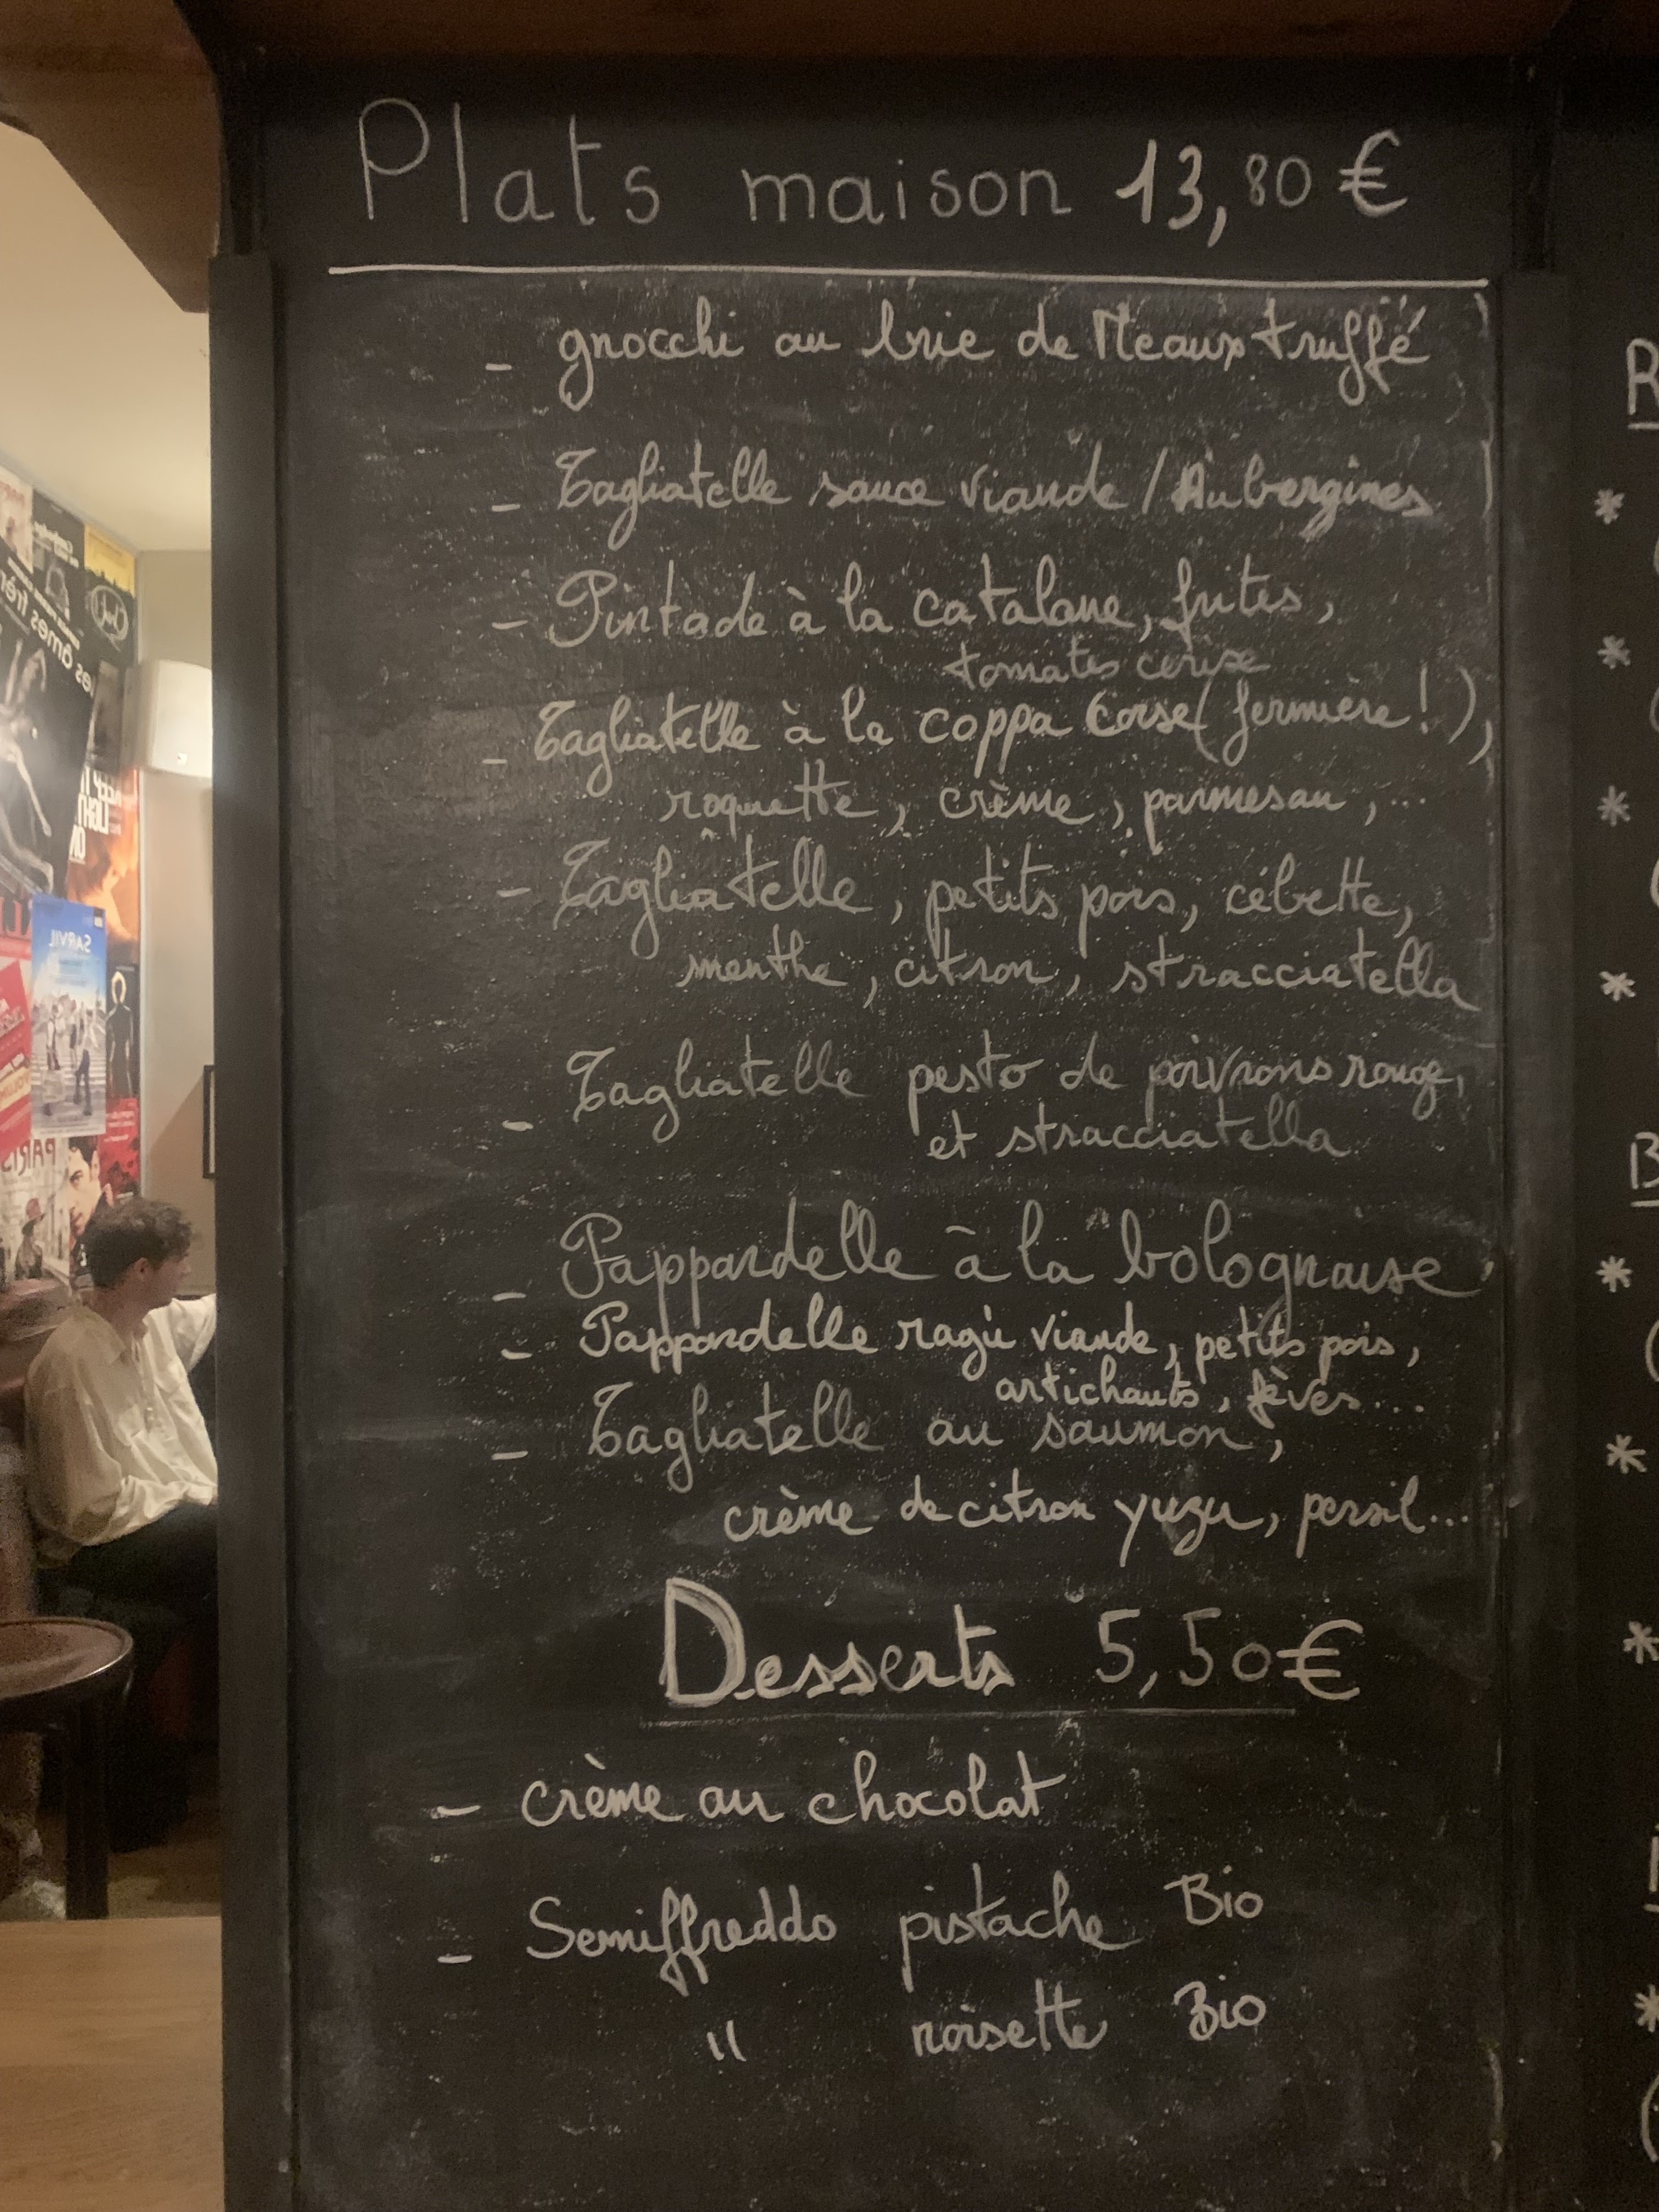 Plats maison 13,80 €
- gnocchi au brie de Meaux truffé
- Tagliatelle sauce viande / Aubergines
- Pintade à la catalane, frites,
tomates cerise
- Tagliatelle à la coppa Corse (fermière !),
roquette, crème, parmesan, ...
- Tagliatelle, petits pois, cébette,
menthe, citron, stracciatella
- Tagliatelle pesto de poivrons rouge,
et stracciatella
- Pappardelle à la bolognaise
- Pappardelle ragù viande, petits pois,
artichauts, fèves...
- Tagliatelle au saumon,
crème de citron yuzu, persil...
Desserts 5,50€
- crème au chocolat
- Semiffreddo pistache Bio
" noisette Bio
R
*
*
*
*
B
*
*
*
*
SARVIL
PARIS